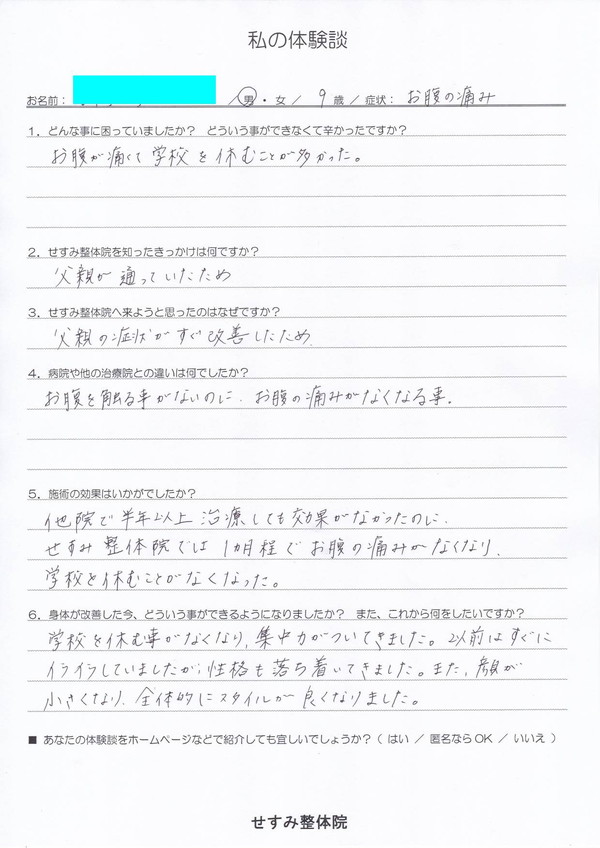 私の体験談
お名前： /男・女/ 9歳/症状：お腹の痛み
1．どんな事に困っていましたか？ どういう事ができなくて辛かったですか？
お腹が痛くて学校を休むことが多かった。
2．せすみ整体院を知ったきっかけは何ですか？
父親が通っていたため
3．せすみ整体院へ来ようと思ったのはなぜですか？
父親の症状がすぐ改善したため.
4．病院や他の治療院との違いは何でしたか？
お腹を触る事がないのに、お腹の痛みがなくなる事.
5．施術の効果はいかがでしたか？
他院で半年以上治療しても効果がなかったのに、
せすみ整体院では1カ月程でお腹の痛みがなくなり、
学校を休むことがなくなった。
6．身体が改善した今、どういう事ができるようになりましたか？ また、これから何をしたいですか？
学校を休む事がなくなり、集中力がついてきました。以前はすぐに
イライラしていましたが、性格も落ち着いてきました。また、顔が
小さくなり、全体的にスタイルが良くなりました。
■ あなたの体験談をホームページなどで紹介しても宜しいでしょうか？（ はい ／ 匿名ならOK ／ いいえ ）
せすみ整体院